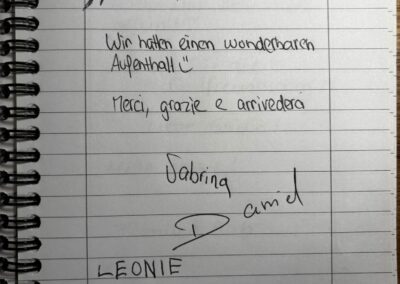 Wir hatten einen wonderbaren
Aufenthalt! :)
Merci, grazie e arrivederci
Sabrina
Daniel
LEONIE